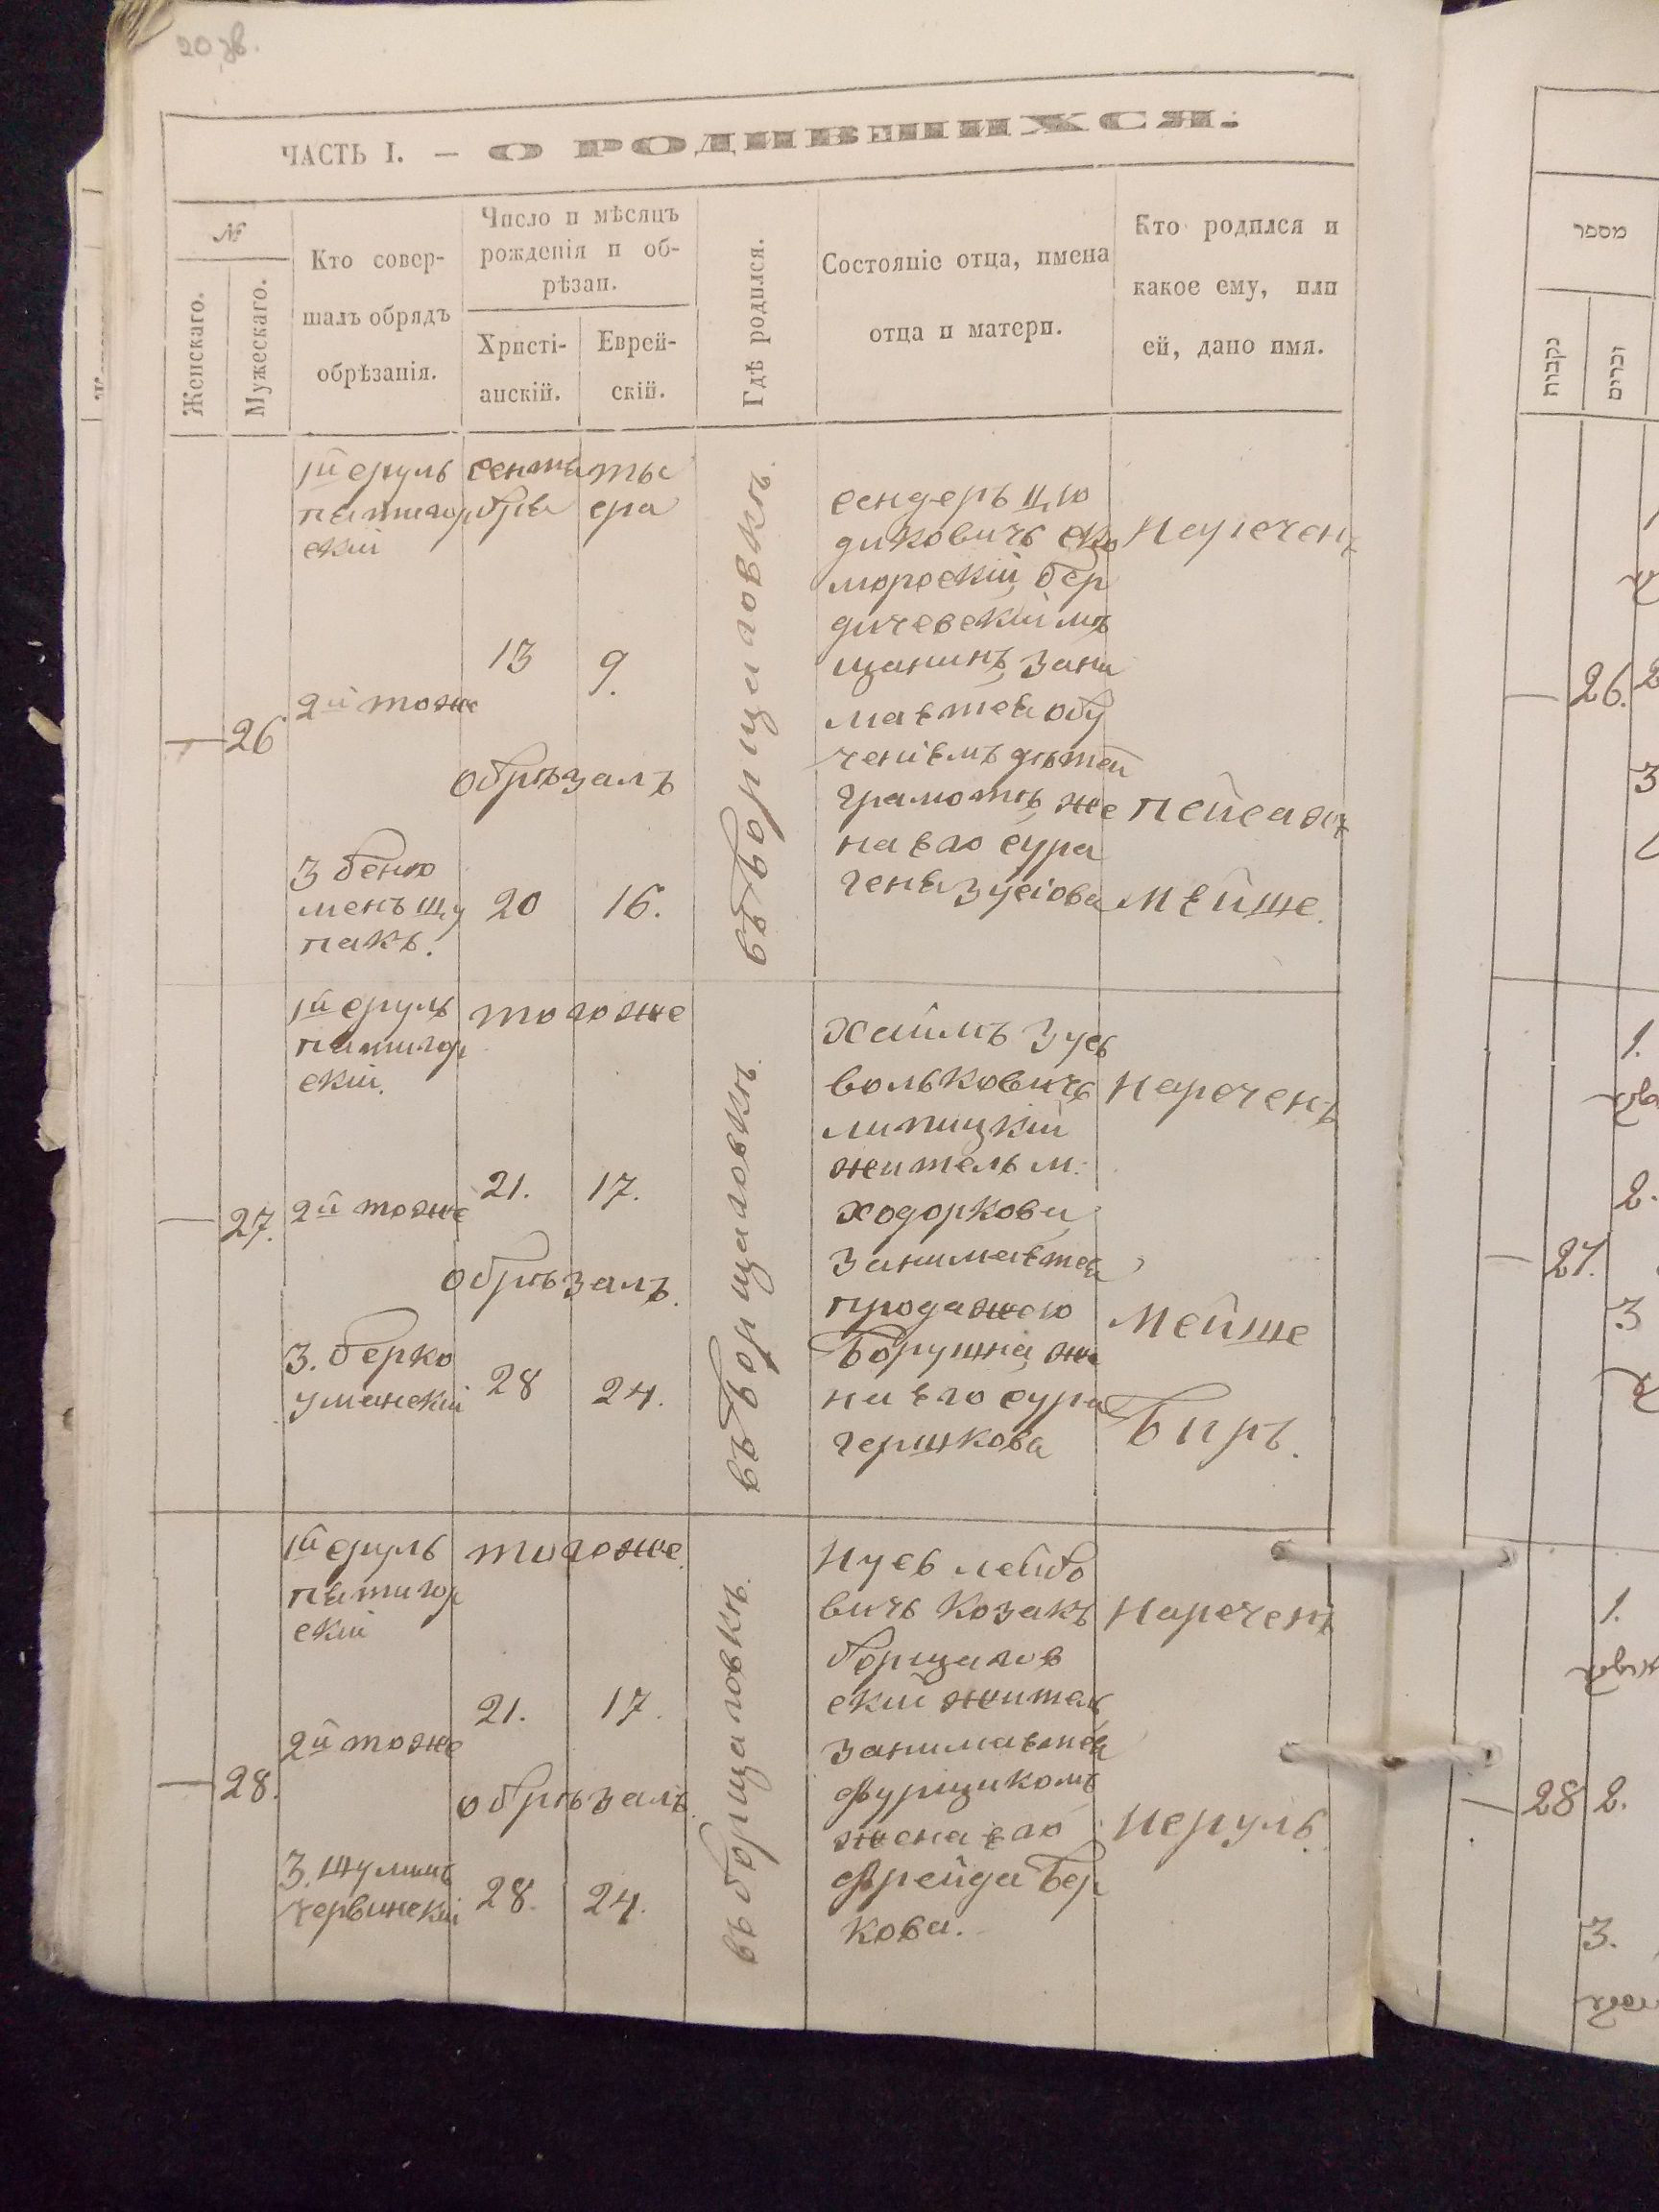 20 зв.
ЧАСТЬ I. — О РОДИВШИХСЯ.
№
Женскаго.
Мужескаго.
Кто совер-
шалъ обрядъ
обрѣзанія.
Число и мѣсяцъ
рожденія и об-
рѣзан.
Христі-
анскій.
Еврей-
скій.
Гдѣ родился.
Состояніе отца, имена
отца и матери.
Кто родился и
какое ему, или
ей, дано имя.
— 26
1й сруль
пятигор
скій
2й тоже
3 беню
менъ щу
пакъ.
сентя
бря
13
обрѣзалъ
20
ты
сра
9.
16.
въ Борщаговкѣ.
сендеръ цю
диковичъ ско
моровскій, бер
дичевскій мѣ
щанинъ, зани
мается обу
ченіемъ дѣтей
грамотѣ, же
на его сура
геня зусіова
Нареченъ
пейсахъ
Мейше.
— 27.
1й сруль
пятигор
скій.
2й тоже
3. берко
уманскій
тогоже
21. 17.
обрѣзалъ.
28 24.
въ Борщаговкѣ.
хаимъ зусь
вольковичъ
липицкій
житель м.
ходоркова,
занимается
продажею
Борушна, же
на его сура
гершкова
Нареченъ
Мейше
Биръ.
— 28.
1й сруль
пятигор
скій
2й тоже
3. шулимъ
червинскій
тогоже
21. 17.
обрѣзалъ.
28. 24.
въ борщаговкѣ.
Нусь лейбо
вичъ козакъ
борщагов
скій житель,
занимается
фурщикомъ
жена его
фрейда Бер
кова.
Нареченъ
Исруль.
מספר
נקבות
זכרים
— 26.
3
1.
2.
— 27.
3
1.
— 28 2.
3.